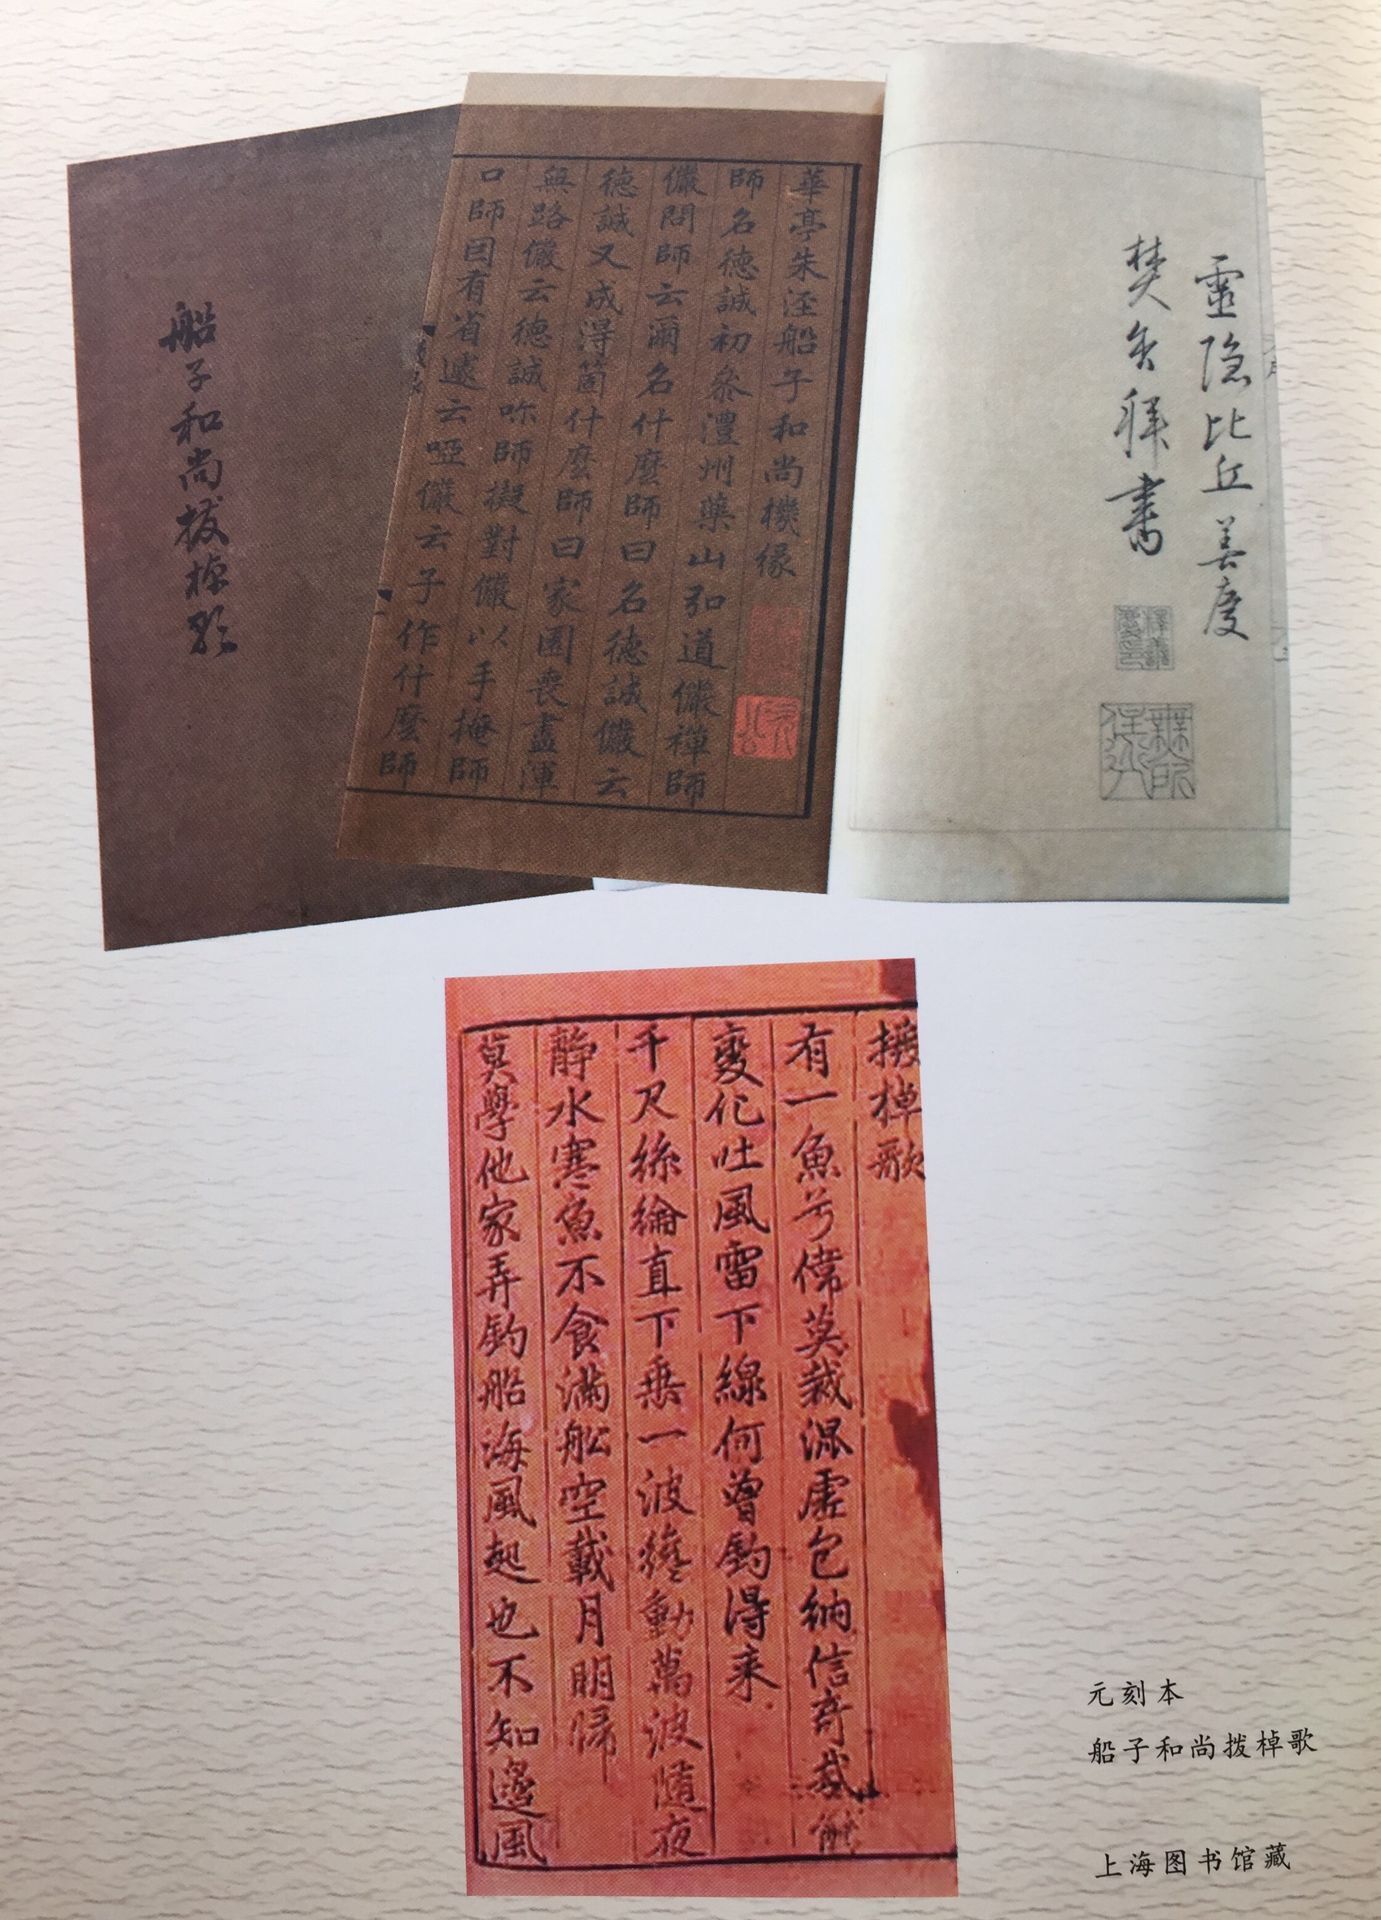 靈隐比丘美度
焚香拜書
華亭朱涇船子和尚機緣
師名德誠初叅澧州藥山弘道儼禪師
儼問師云爾名什麼師曰名德誠儼云
德誠又成得箇什麼師曰家園喪盡渾
無路儼云德誠哆師擬對儼以手掩師
口師因有省遽云啞儼云子作什麼師
船子和尚拨棹歌
撥棹歌
有一魚兮偉莫裁混虛包納信奇哉能
變化吐風雷下線何曾釣得来
千尺絲綸直下垂一波纔動萬波隨夜
靜水寒魚不食滿船空載月明歸
莫學他家弄釣船海風起也不知邊風
元刻本
船子和尚拨棹歌
上海图书馆藏